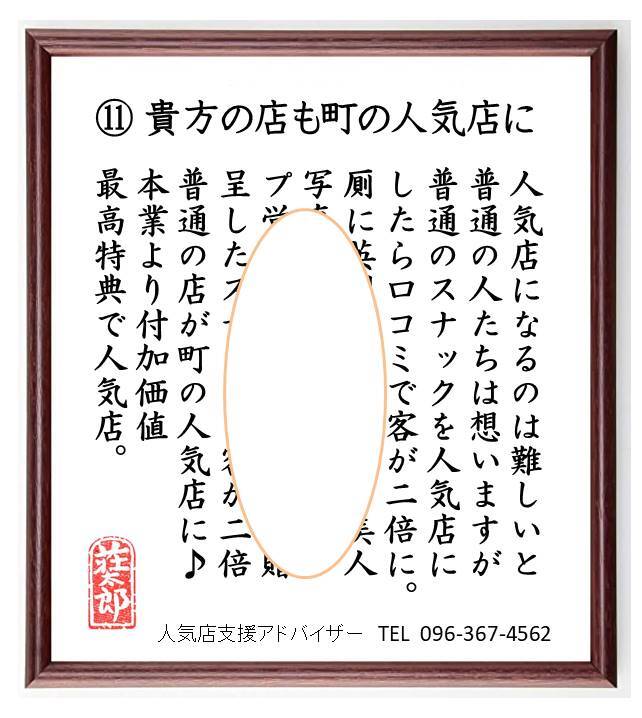 ⑪ 貴方の店も町の人気店に
人気店になるのは難しいと
普通の人たちは想いますが
普通のスナックを人気店に
したら口コミで客が二倍に。
厠に英 美人
写
プ学 贈
呈したス 客が二倍
普通の店が町の人気店に♪
本業より付加価値
最高特典で人気店。
荘太郎
人気店支援アドバイザー TEL 096-367-4562